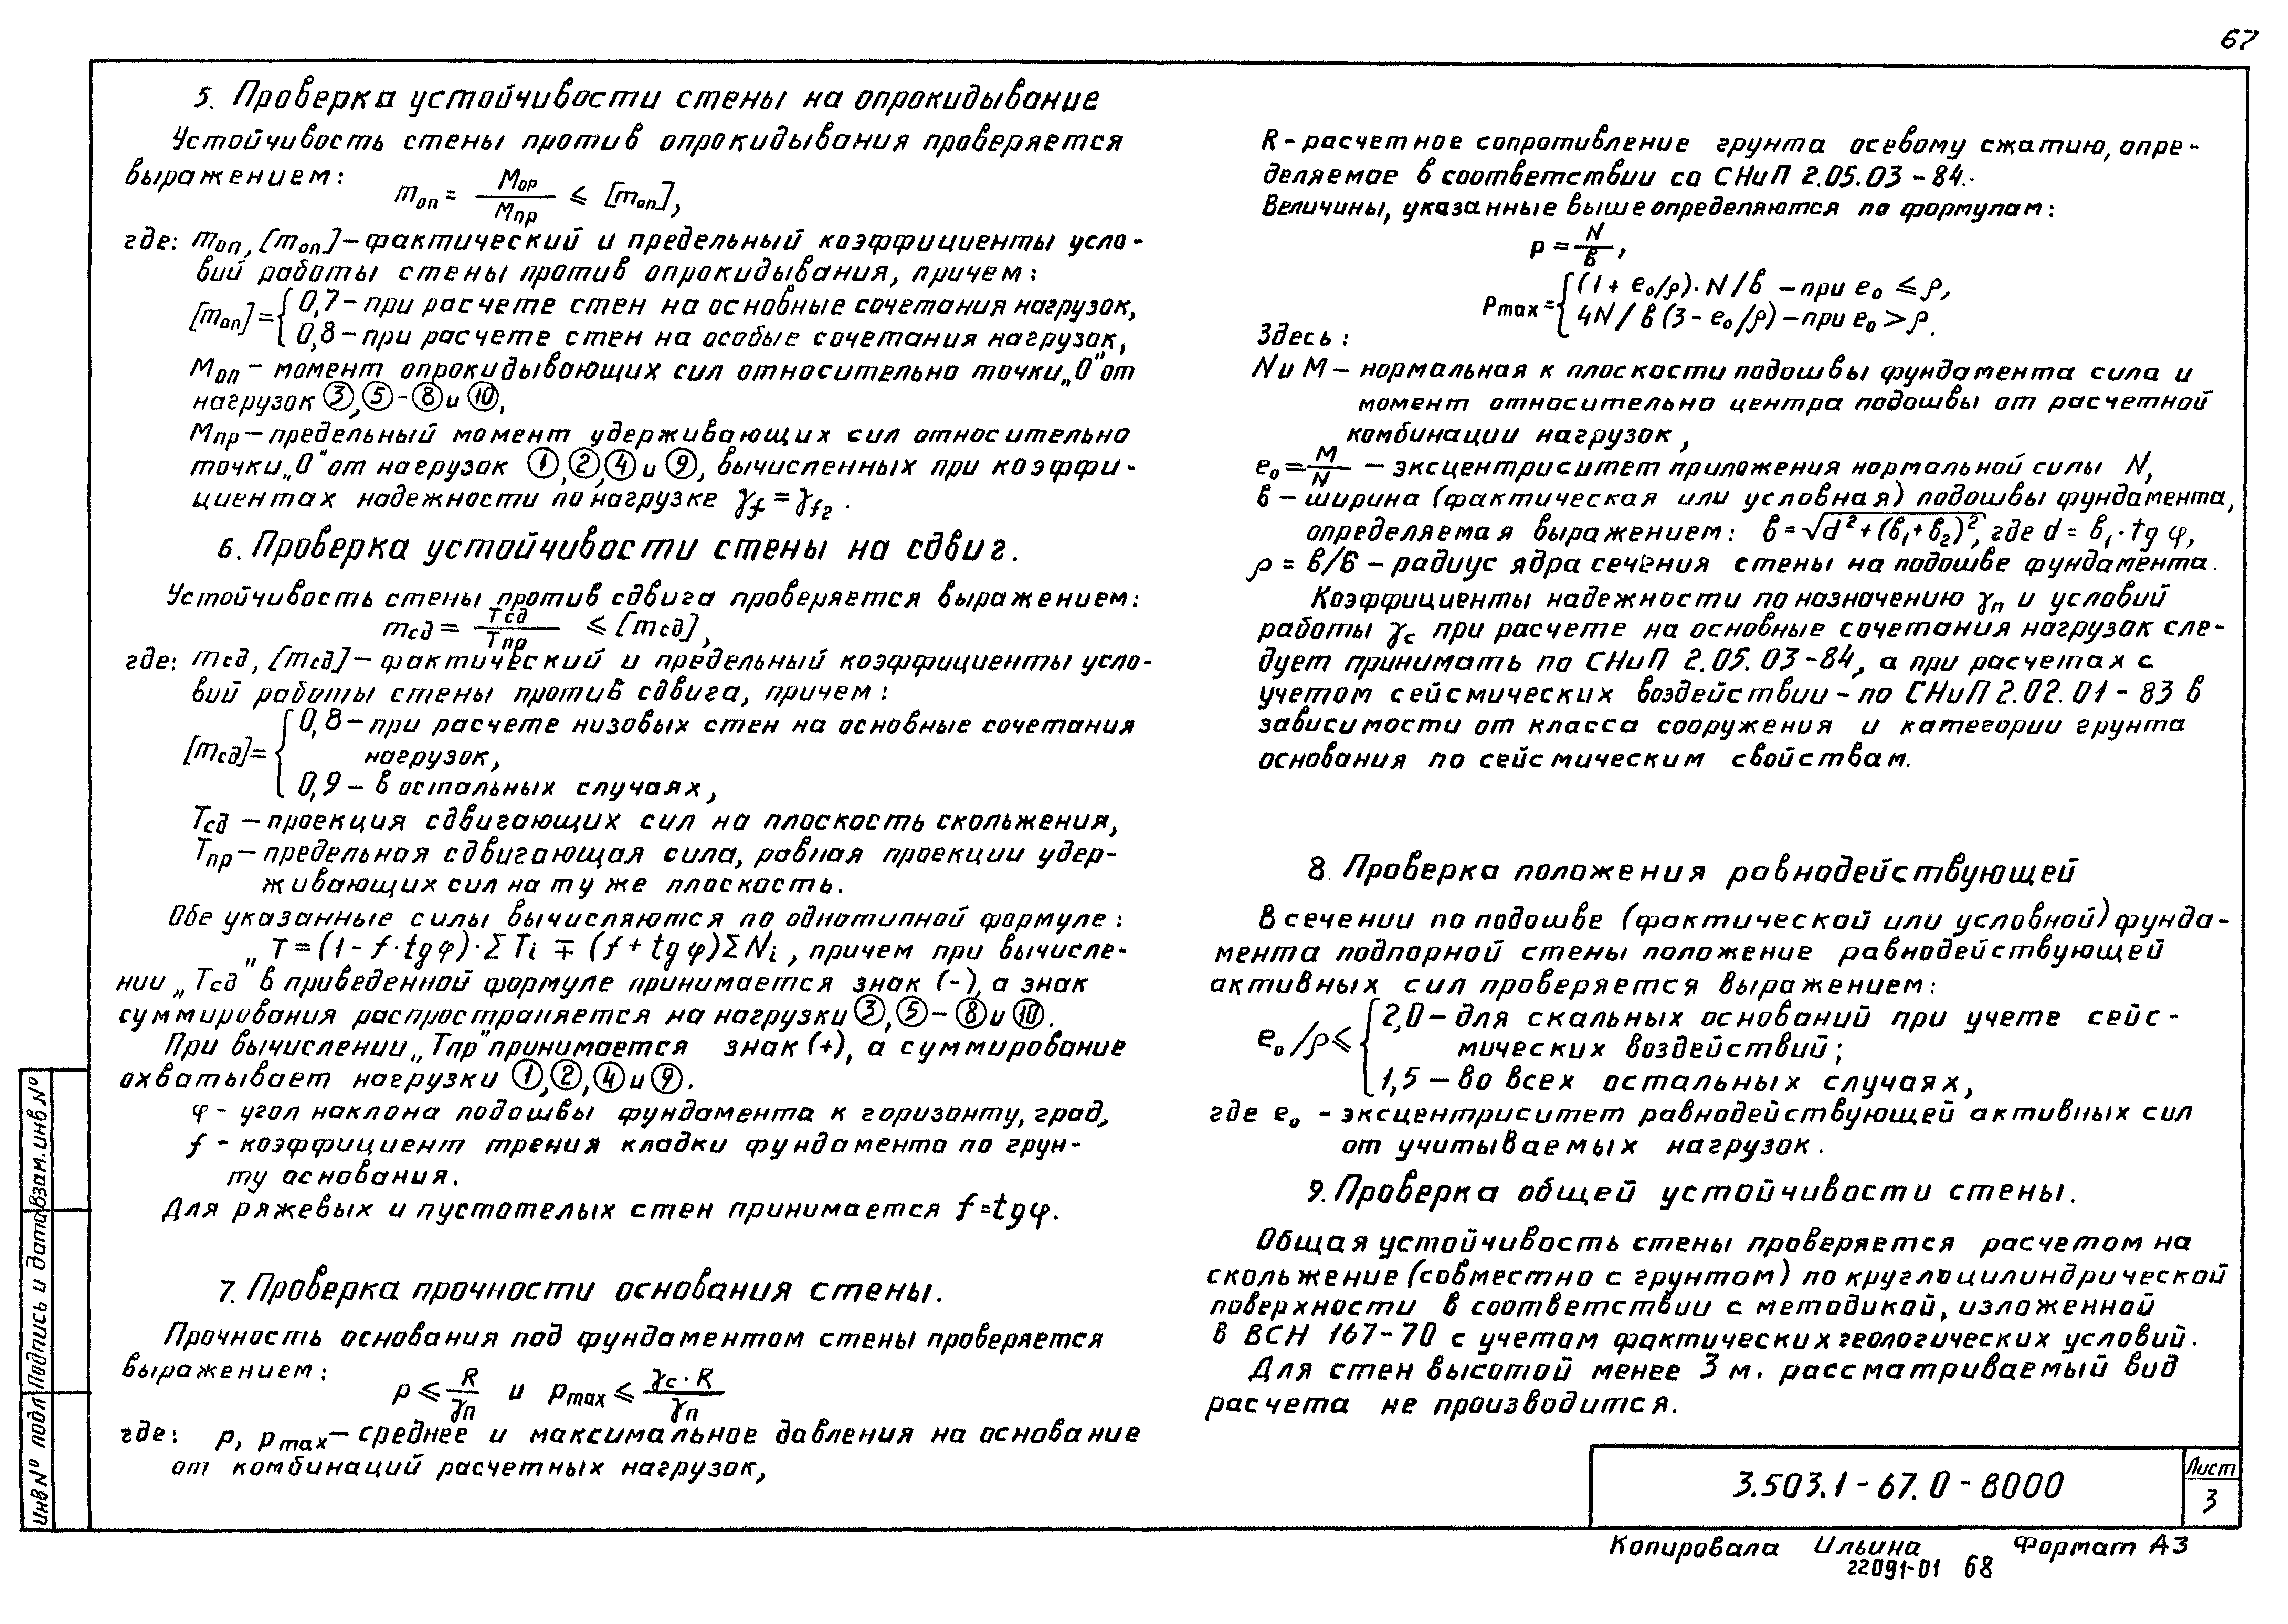 67
5. Проверка устойчивости стены на опрокидывание
Устойчивость стены против опрокидывания проверяется
выражением: mоп = Mор / Mпр ≤ [mоп],
где: mоп, [mоп] – фактический и предельный коэффициенты усло-
вий работы стены против опрокидывания, причем:
[mоп] = { 0,7 – при расчете стен на основные сочетания нагрузок,
0,8 – при расчете стен на особые сочетания нагрузок,
Mоп – момент опрокидывающих сил относительно точки „О" от
нагрузок ③, ⑤ - ⑧ и ⑩,
Mпр – предельный момент удерживающих сил относительно
точки „О" от нагрузок ①, ②, ④ и ⑨, вычисленных при коэффи-
циентах надежности по нагрузке γf = γf2.
6. Проверка устойчивости стены на сдвиг.
Устойчивость стены против сдвига проверяется выражением:
mсд = Tсд / Tпр ≤ [mсд],
где: mсд, [mсд] – фактический и предельный коэффициенты усло-
вий работы стены против сдвига, причем:
[mсд] = { 0,8 – при расчете низовых стен на основные сочетания
нагрузок,
0,9 – в остальных случаях,
Tсд – проекция сдвигающих сил на плоскость скольжения,
Tпр – предельная сдвигающая сила, равная проекции удер-
живающих сил на ту же плоскость.
Обе указанные силы вычисляются по однотипной формуле:
„T = (1 - f·tgφ)·ΣTi ∓ (f + tgφ)ΣNi, причем при вычисле-
нии „Tсд" в приведенной формуле принимается знак (-), а знак
суммирования распространяется на нагрузки ③, ⑤ - ⑧ и ⑩.
При вычислении „Tпр" принимается знак (+), а суммирование
охватывает нагрузки ①, ②, ④ и ⑨.
φ - угол наклона подошвы фундамента к горизонту, град,
f - коэффициент трения кладки фундамента по грун-
ту основания.
Для ряжевых и пустотелых стен принимается f = tgφ.
7. Проверка прочности основания стены.
Прочность основания под фундаментом стены проверяется
выражением:
p ≤ R / γп и pmax ≤ γc·R / γп
где: p, pmax – среднее и максимальное давления на основание
от комбинаций расчетных нагрузок,
R - расчетное сопротивление грунта осевому сжатию, опре-
деляемое в соответствии со СНиП 2.05.03 - 84.
Величины, указанные выше определяются по формулам:
p = N / в,
Pmax = { (1 + e₀/ρ)·N/в – при e₀ ≤ ρ,
4N/в(3 - e₀/ρ) – при e₀ > ρ.
Здесь:
N и M – нормальная к плоскости подошвы фундамента сила и
момент относительно центра подошвы от расчетной
комбинации нагрузок,
e₀ = M / N – эксцентриситет приложения нормальной силы N,
в – ширина (фактическая или условная) подошвы фундамента,
определяемая выражением: в = √d² + (в₁ + в₂)², где d = в₁·tgφ,
ρ = в/6 – радиус ядра сечения стены на подошве фундамента.
Коэффициенты надежности по назначению γп и условий
работы γc при расчете на основные сочетания нагрузок сле-
дует принимать по СНиП 2.05.03-84, а при расчетах с
учетом сейсмических воздействий – по СНиП 2.02.01 - 83 в
зависимости от класса сооружения и категории грунта
основания по сейсмическим свойствам.
8. Проверка положения равнодействующей
В сечении по подошве (фактической или условной) фунда-
мента подпорной стены положение равнодействующей
активных сил проверяется выражением:
e₀/ρ ≤ { 2,0 – для скальных оснований при учете сейс-
мических воздействий;
1,5 – во всех остальных случаях,
где e₀ - эксцентриситет равнодействующей активных сил
от учитываемых нагрузок.
9. Проверка общей устойчивости стены.
Общая устойчивость стены проверяется расчетом на
скольжение (совместно с грунтом) по круглоцилиндрической
поверхности в соответствии с методикой, изложенной
в ВСН 167-70 с учетом фактических геологических условий.
Для стен высотой менее 3 м. рассматриваемый вид
расчета не производится.
3.503.1 - 67.0 - 8000
Лист
3
Копировала Ильина Формат А3
22091-01 68
Инв № подл
Подпись и дата
Взам. инв №